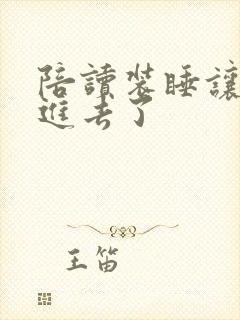 陪讀裝睡讓
進去了
王笛